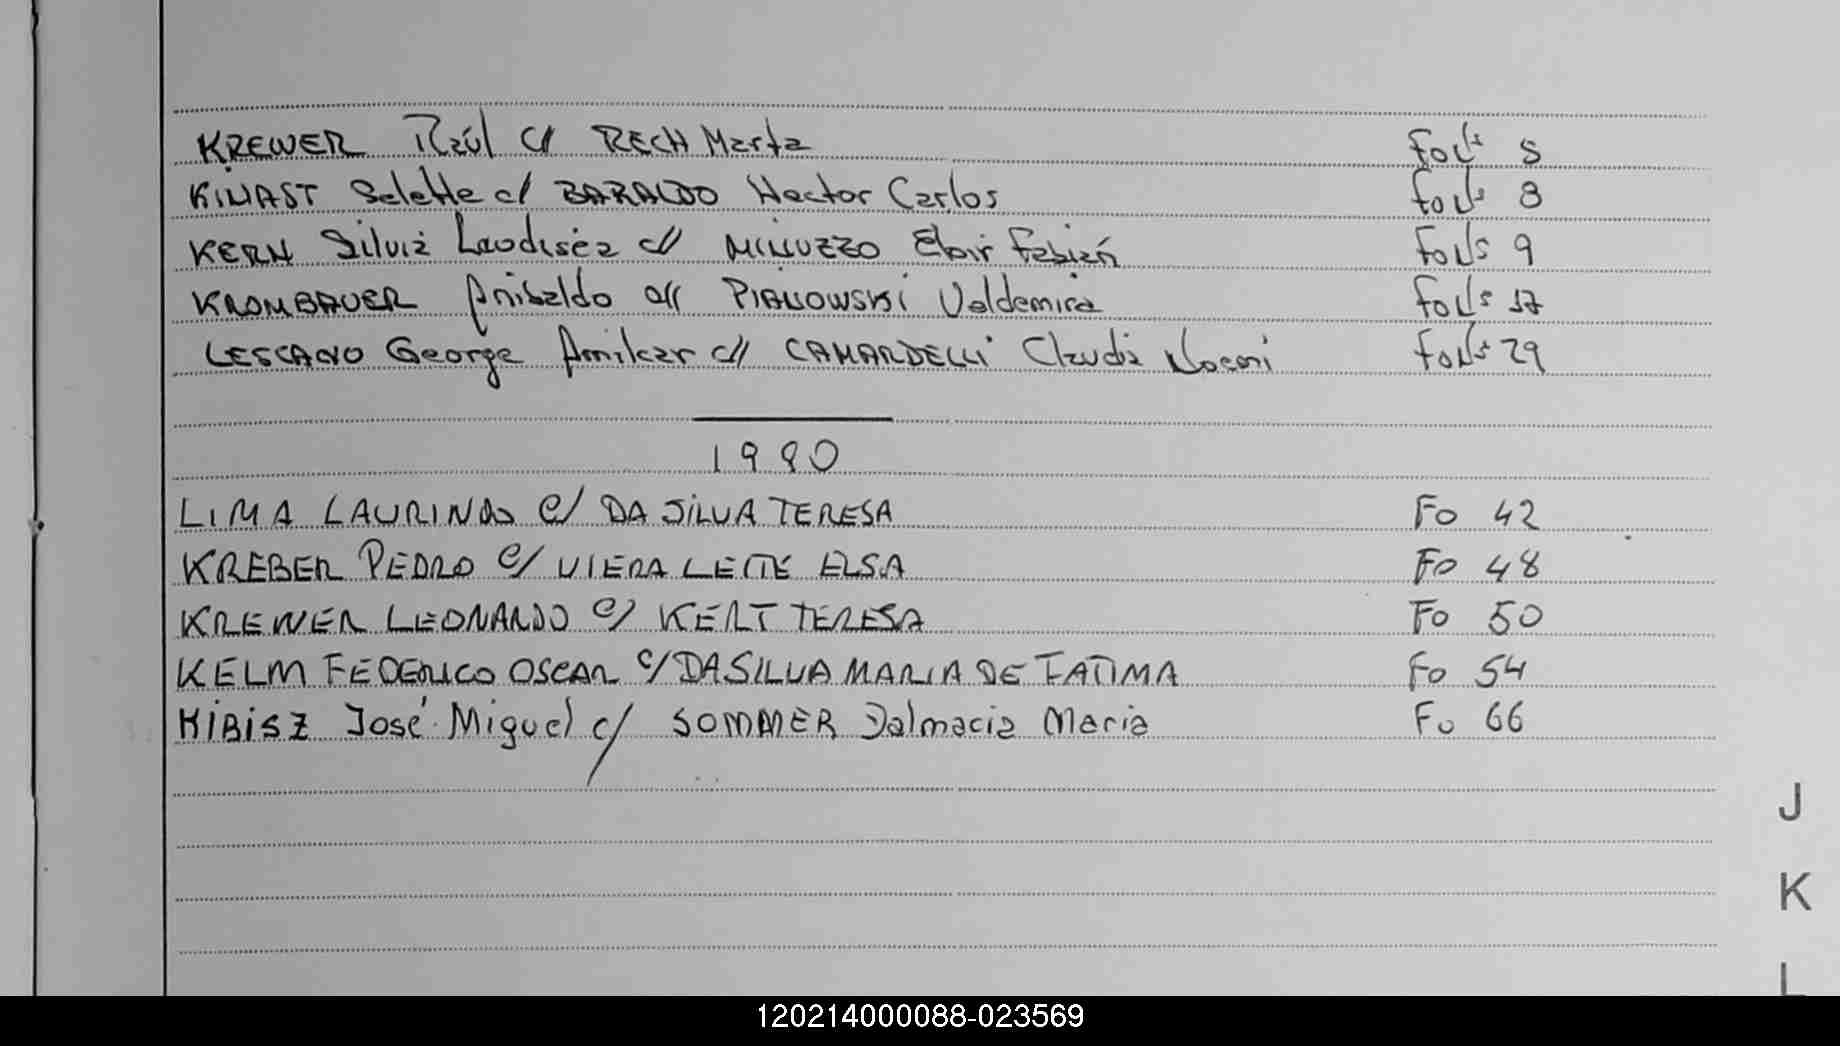 KREWER Raúl c/ RECH Marta Folis 5
KINAST Selette c/ BARALDO Hector Carlos Folis 8
KERN Silvia c// MINUZZO Fabián Folis 9
KROMBAUER Anibaldo c// PIANOWSKI Valdemira Folis 17
LESCANO George Amilcar c// CAMARDELLI Claudia Noemi Folis 29
1990
LIMA LAURINDO C/ DA SILVA TERESA Fo 42
KREBER PEDRO C/ VIERA LEITE ELSA Fo 48
KREWER LEONARDO C/ KERT TERESA Fo 50
KELM FEDERICO OSCAR C/ DA SILVA MARIA DE FATIMA Fo 54
KIBISZ José Miguel c/ SOMMER Dalmacia Maria Fo 66
J
K
L
120214000088-023569